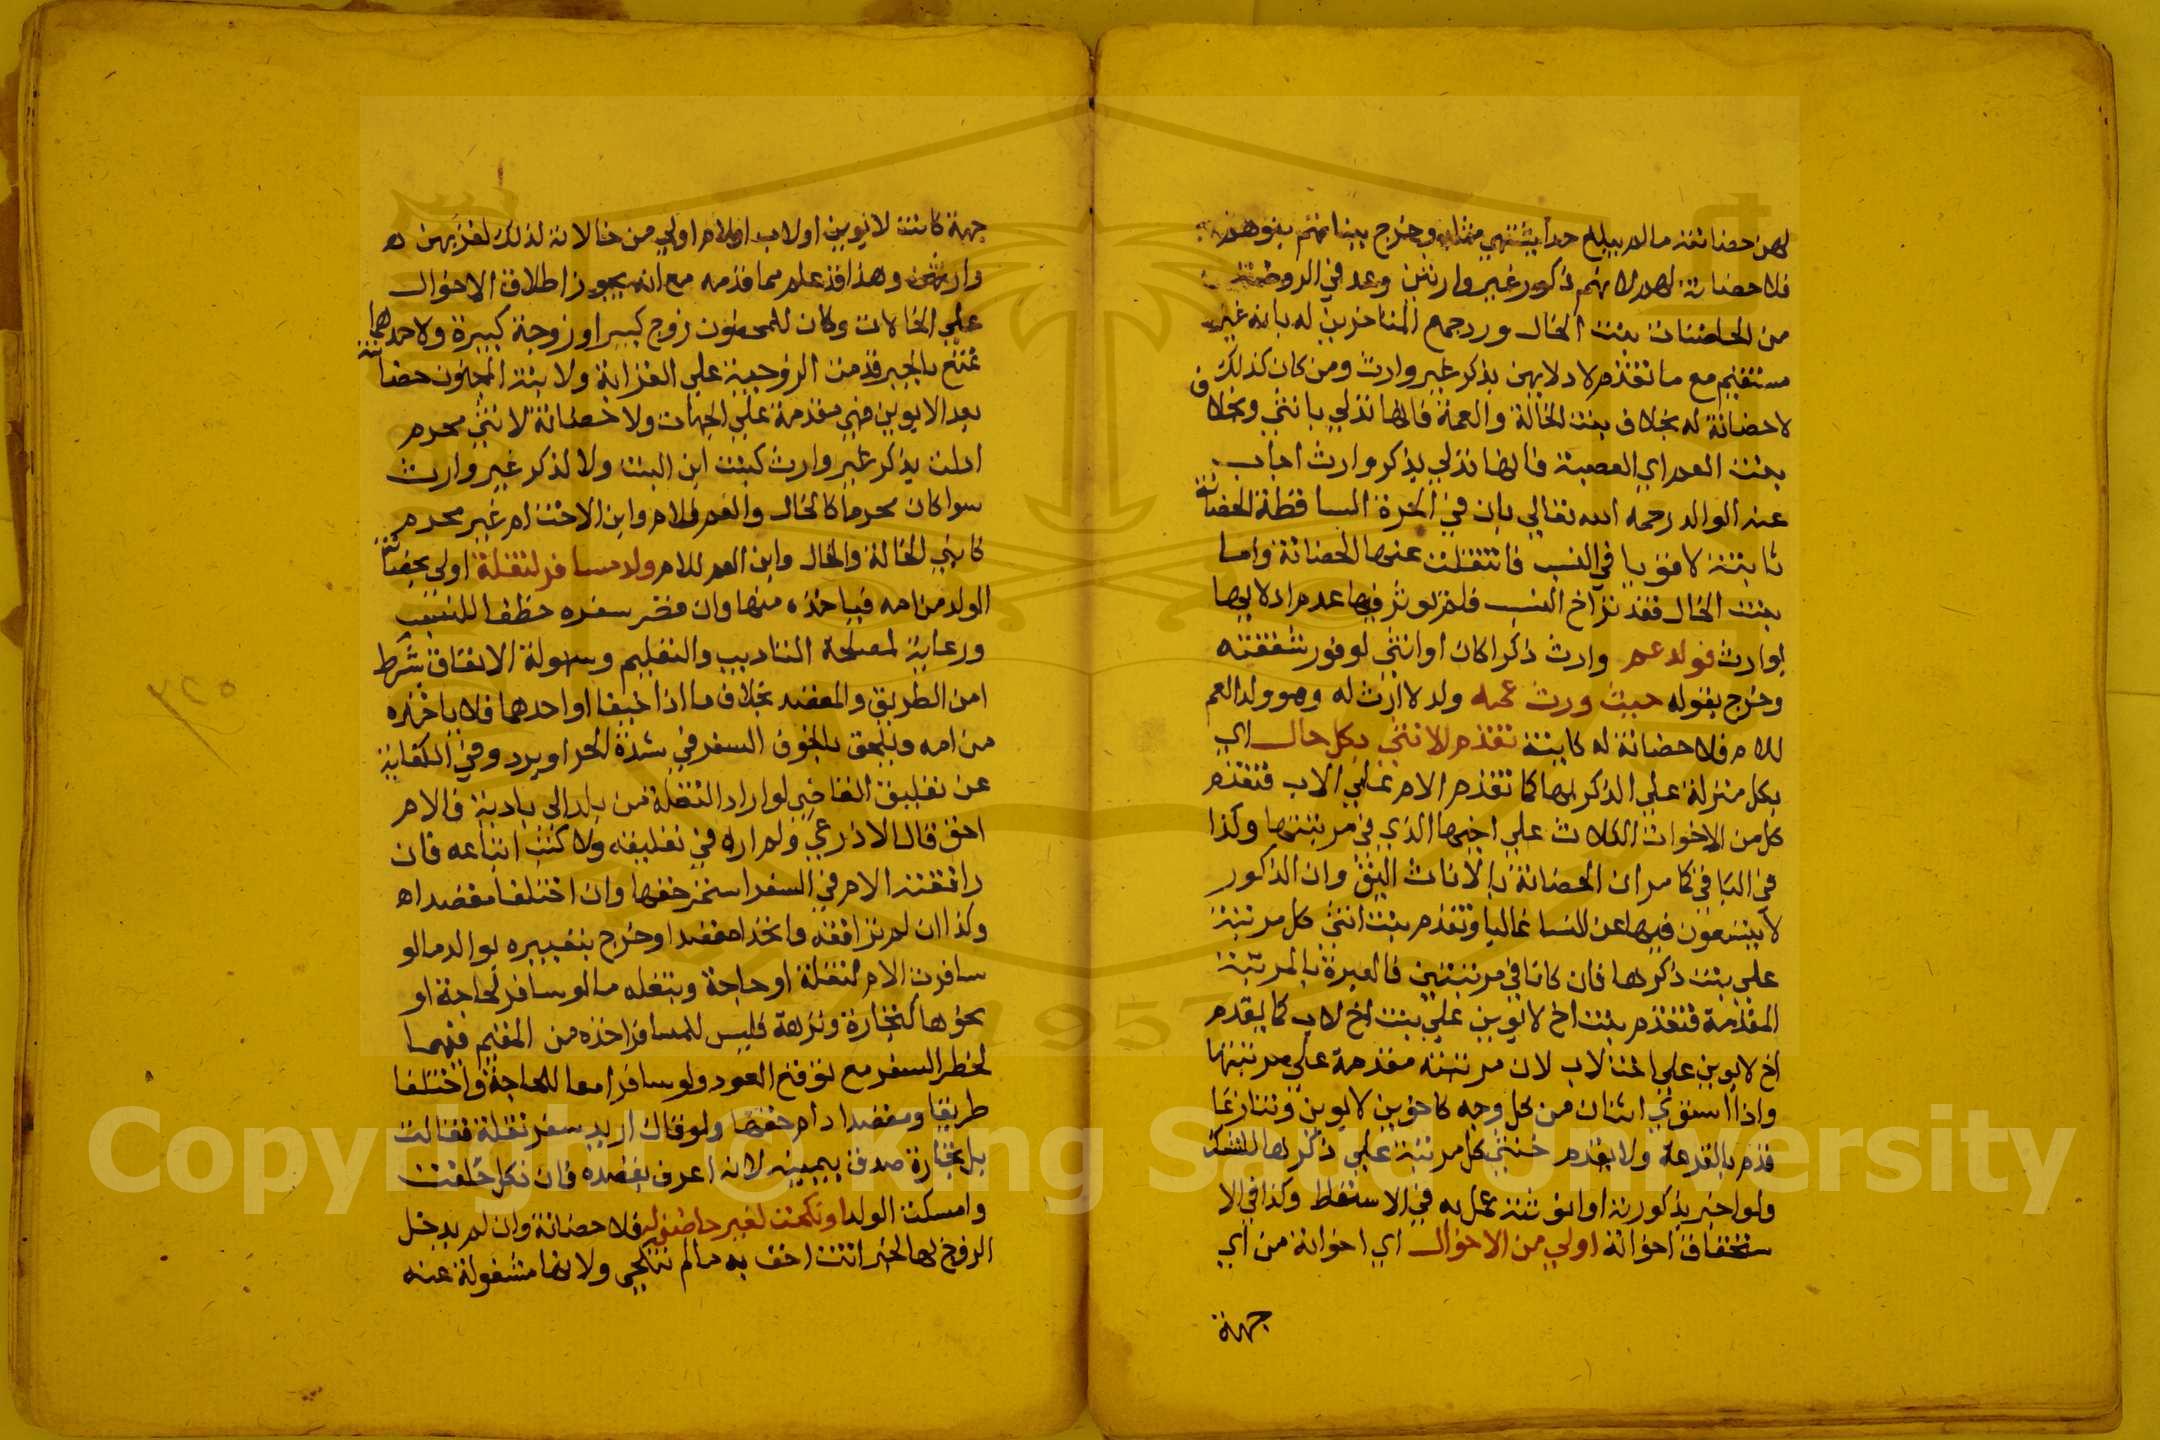 لهن حضانته مالم يبلغ حدا يشتهي مثله وخرج ببناتهم بنوهن
فلا حضانة لهم لانهم ذكور غير وارثين وعد في الروضة
من الحاضنات بنت الخال ورد جمع المتاخرين له بانه غير
مستقيم مع ما تقدم لادلايهن بذكر غير وارث ومن كان كذلك
لا حضانة له بخلاف بنت الخالة والعمة فانها تدلي بانثي وبخلاف
بنت العم اي العصبة فانها تدلي بذكر وارث اجاب
عنه الوالد رحمه الله تعالي بان في الحرة الساقطة الحضانة
ثابتة لاقويا في النسب فانتقلت عنها الحضانة واما
بنت الخال فقد تراخ النسب فلم يوثر فيها عدم ادلايها
بوارث فولد عم وارث ذكرا كان او انثي لوفور شفقته
وخرج بقوله حيث ورث عمه ولد لا ارث له وهو ولد العم
للام فلا حضانة له كابنته تقدم الانثي بكل حال اي
بكل منزلة علي الذكر بها كما تقدم الام علي الاب فتقدم
كل من الاخوات الثلاث علي اخيها الذي في مرتبتها وكذا
في الباقي كما مر ان الحضانة بالاناث اليق وان الذكور
لا يستغنون فيها عن النسا غالبا وتقدم بنت انثي كل مرتبة
علي بنت ذكرها فان كانا في مرتبتين فالعبرة بالمرتبة
المقدمة فتقدم بنت اخ لابوين علي بنت اخ لاب كما يقدم
اخ لابوين علي اخت لاب لان مرتبته مقدمة علي مرتبتها
واذا استوي اثنان من كل وجه كاخوين لابوين وتنازعا
قدم بالقرعة ولا يقدم خنثي كل مرتبة علي ذكرها للشك
ولو اخبر بذكورته او انوثته عمل به في الاسقاط وكذا في الا
ستحقاق اخواته اولي من الاخوال اي اخواته من اي
جهة
جهة كانت لابوين او لاب او لام اولي من خالاته لذلك لقربهن
وارثهن وهذا قد علم مما قدمه مع انه يجوز اطلاق الاخوال
علي الخالات وكان للمحضون زوج كبير او زوجة كبيرة ولاحدهما
تمتع بالاخر قدمت الزوجية علي القرابة ولا بنة المجنون حضانته
بعد الابوين فهي مقدمة علي الجهات ولا حضانة لانثي محرم
ادلت بذكر غير وارث كبنت ابن البنت ولا لذكر غير وارث
سوا كان محرما كالخال والعم للام وابن الاخت ام غير محرم
كابني الخالة والخال وابن العم للام ولد مسافر لنقلة اولي بحضانته
الولد من امه فياخذه منها وان قصر سفره حظفا للنسب
ورعاية لمصلحة التاديب والتعليم وسهولة الانفاق بشرط
امن الطريق والمقصد بخلاف ما اذا خيفا او احدهما فلا ياخذه
من امه ويلحق بالخوف السفر في شدة الحر او برد وفي الكفاية
عن تعليق القاضي لو اراد النقلة من بلد الي بادية فالام
احق قال الاذرعي ولم اره في تعليقه ولا كتب اتباعه فان
رافقته الام في السفر استمر حقها وان اختلفا مقصداه
وكذا ان لم ترافقه واتخذا مقصدا وخرج بتعبيره بوالد ما لو
سافرت الام لنقلة او حاجة وبنقله ما لو سافر لحاجة او
نحوها كتجارة ونزهة فليس للمسافر اخذه من المقيم فيهما
لخطر السفر مع توقع العود ولو سافرا معا للحاجة واختلفا
طريقا ومقصدا دام حقها ولو قال اريد سفر نقلة فقالت
بل تجارة صدق بيمينه لانه اعرف بقصده فان نكل حلفت
وامسكت الولد او نكحت لغير حاضنوه فلا حضانة وان لم يدخل
الزوج بها لخبر انت احق به مالم تنكحي ولانها مشغولة عنه
Copyright © King Saud University
1957